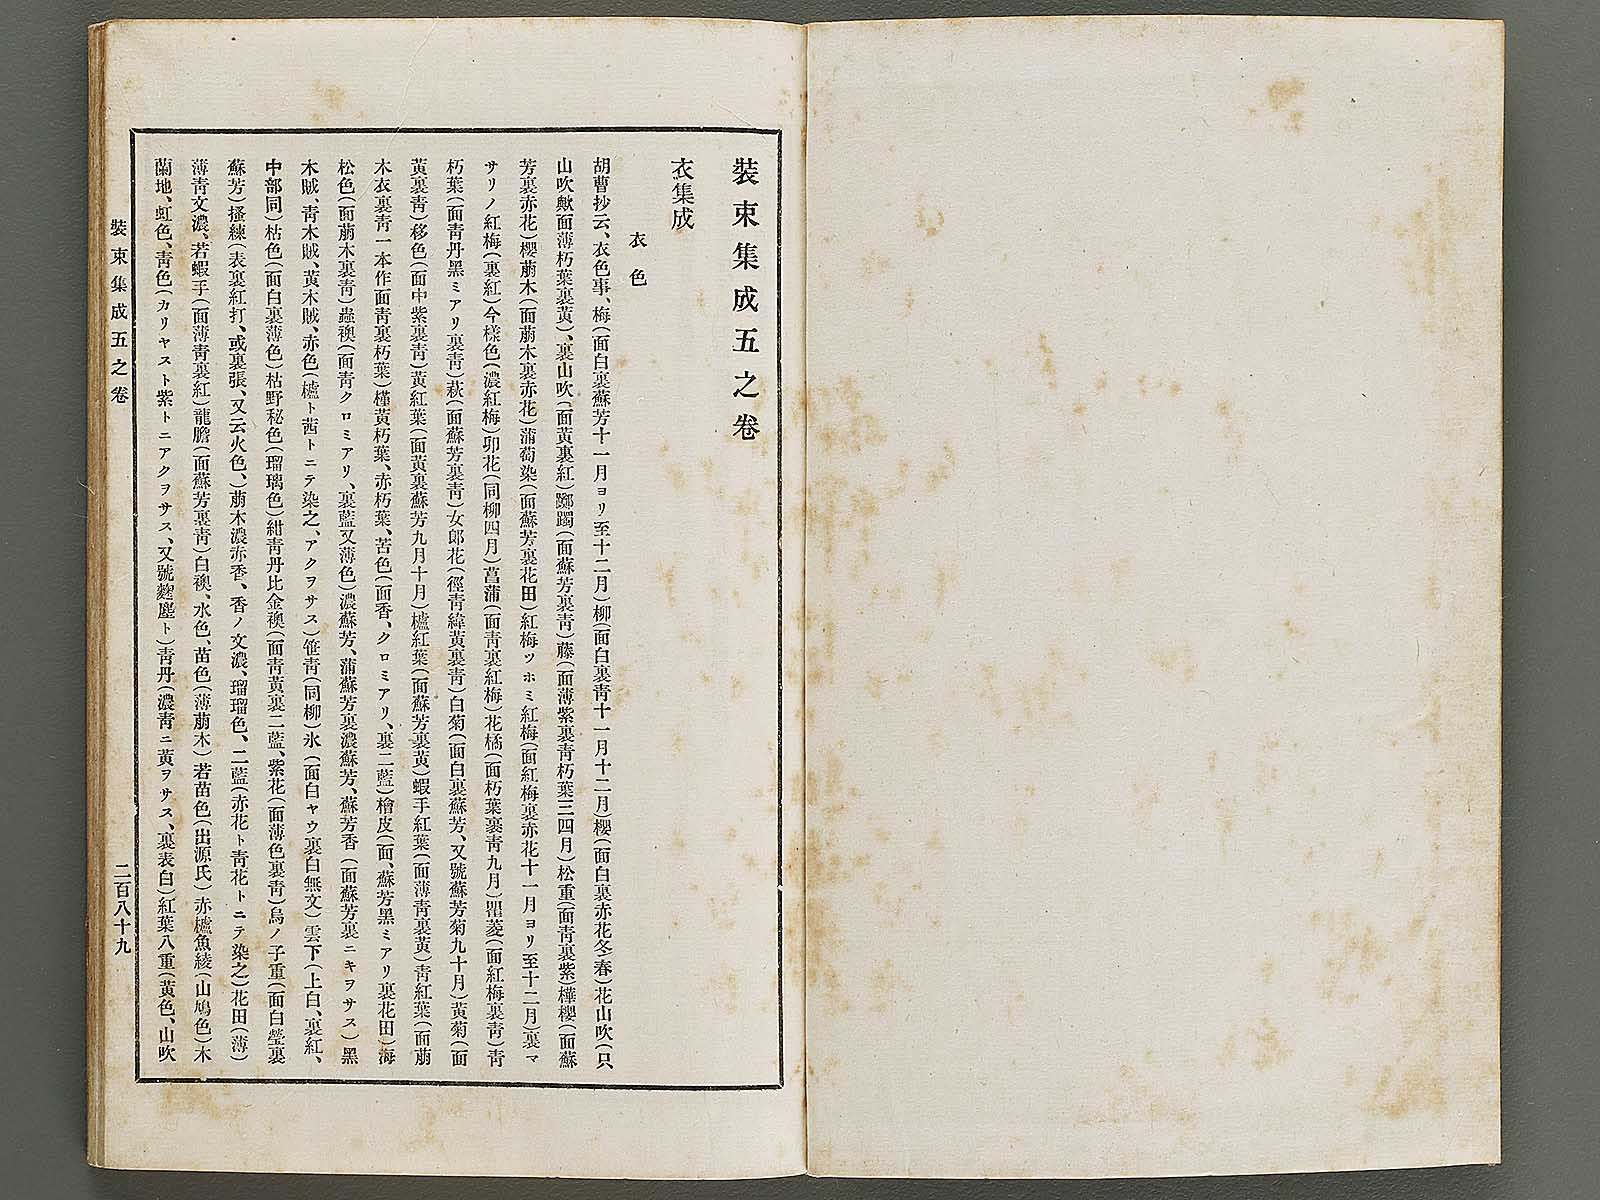 裝束集成五之卷
衣集成
衣色
胡曹抄云、衣色事、梅(面白裏蘇芳十一月ヨリ至十二月)柳(面白裏靑十一月十二月)櫻(面白裏赤花冬春)花山吹(只
山吹歟面薄朽葉裏黃)、裏山吹(面黃裏紅)躑躅(面蘇芳裏靑)藤(面薄紫裏靑朽葉三四月)松重(面靑裏紫)樺櫻(面蘇
芳裏赤花)櫻萠木(面萠木裏赤花)蒲萄染(面蘇芳裏花田)紅梅ツホミ紅梅(面紅梅裏赤花十一月ヨリ至十二月)裏マ
サリノ紅梅(裏紅)今樣色(濃紅梅)卯花(同柳四月)菖蒲(面靑裏紅梅)花橘(面朽葉裏靑九月)瞿菱(面紅梅裏靑)靑
朽葉(面靑丹黑ミアリ裏靑)萩(面蘇芳裏靑)女郎花(徑靑緯黃裏靑)白菊(面白裏蘇芳、又號蘇芳菊九十月)黃菊(面
黃裏靑)移色(面中紫裏靑)黃紅葉(面黃裏蘇芳九月十月)櫨紅葉(面蘇芳裏黃)蝦手紅葉(面薄靑裏黃)靑紅葉(面萠
木衣裏靑一本作面靑裏朽葉)槿黃朽葉、赤朽葉、苦色(面香、クロミアリ、裏二藍)檜皮(面、蘇芳黑ミアリ裏花田)海
松色(面萠木裏靑)蟲襖(面靑クロミアリ、裏藍又薄色)濃蘇芳、蒲蘇芳裏濃蘇芳、蘇芳香(面蘇芳裏ニキヲサス)黑
木賊、靑木賊、黃木賊、赤色(櫨ト茜トニテ染之、アクヲサス)笹靑(同柳)氷(面白ヤウ裏白無文)雲下(上白、裏紅、
中部同)枯色(面白裏薄色)枯野秘色(瑠璃色)紺靑丹比金襖(面靑黃裏二藍、紫花(面薄色裏靑)鳥ノ子重(面白瑩裏
蘇芳)搔練(表裏紅打、或裏張、又云火色、)萠木濃赤香、香ノ文濃、瑠瑠色、二藍(赤花ト靑花トニテ染之)花田(薄)
薄靑文濃、若蝦手(面薄靑裏紅)龍膽(面蘇芳裏靑)白襖、水色、苗色(薄萠木)若苗色(出源氏)赤櫨魚綾(山鳩色)木
蘭地、虹色、靑色(カリヤスト紫トニアクヲサス、又號麴塵ト)靑丹(濃靑ニ黃ヲサス、裏表白)紅葉八重(黃色、山吹
裝束集成五之卷
二百八十九